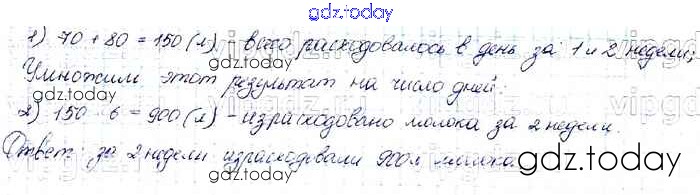 gdz.today
1) 70 + 80 = 150 (л) - всего расходовалось в день за 1 и 2 недели;
Умножим этот результат на число дней.
2) 150 · 6 = 900 (л) - израсходовано молока за 2 недели.
Ответ: за 2 недели израсходовали 900 л молока.
gdz.today
gdz.today